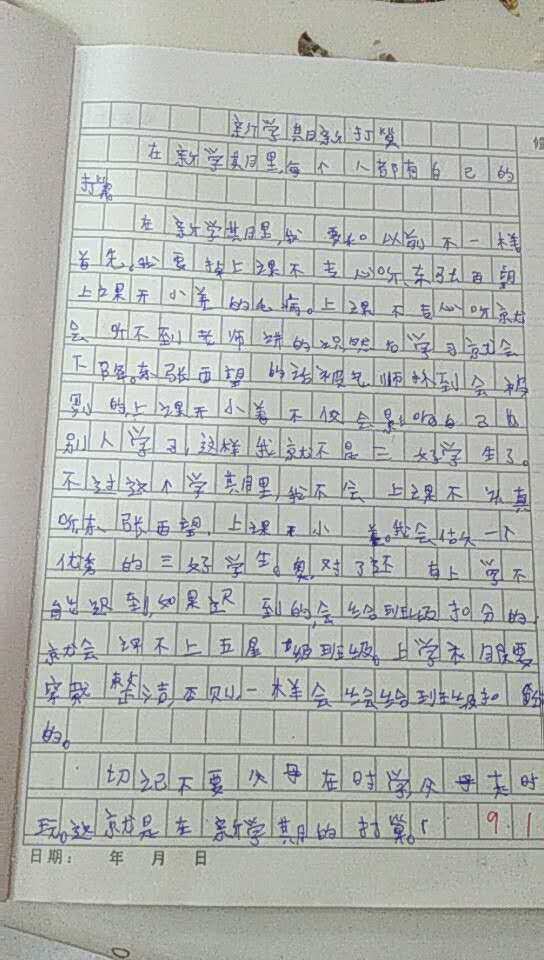 新学期新打算
在新学期里,每个人都有自己的
打算。
在新学期里,我要和以前不一样
首先。我要掉上课不专心听、东张西望
上课开小差的毛病。上课不专心听就
会听不到老师讲的知识后学习就会
下降。东张西望的话被老师补到会被
骂的上课开小差不仅会影响自己也
别人学习,这样我就不是三好学生了。
不过这个学期里,我不会上课不认真
听、东张西望,上课开小差。我会做一个
优秀的三好学生。奥,对了还有上学不
迟到,如果迟到的,会给班级扣分的,
就会评不上五星级班级。上学衣服要
穿戴整洁,否则一样会给班级扣分
的。
切记不要父母在时学,父母走时
玩。这就是在新学期的打算。
9.1
日期： 年 月 日